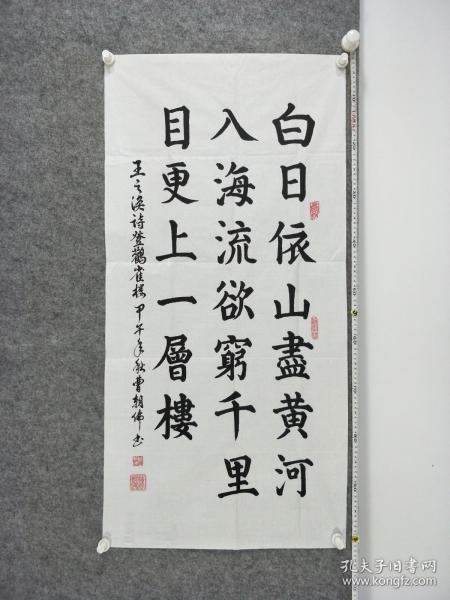 白日依山盡黄河
入海流欲窮千里
目更上一層樓
王之渙詩登鸛雀樓甲午年秋曹朝偉書
孔夫子旧书网
www.kongfz.com